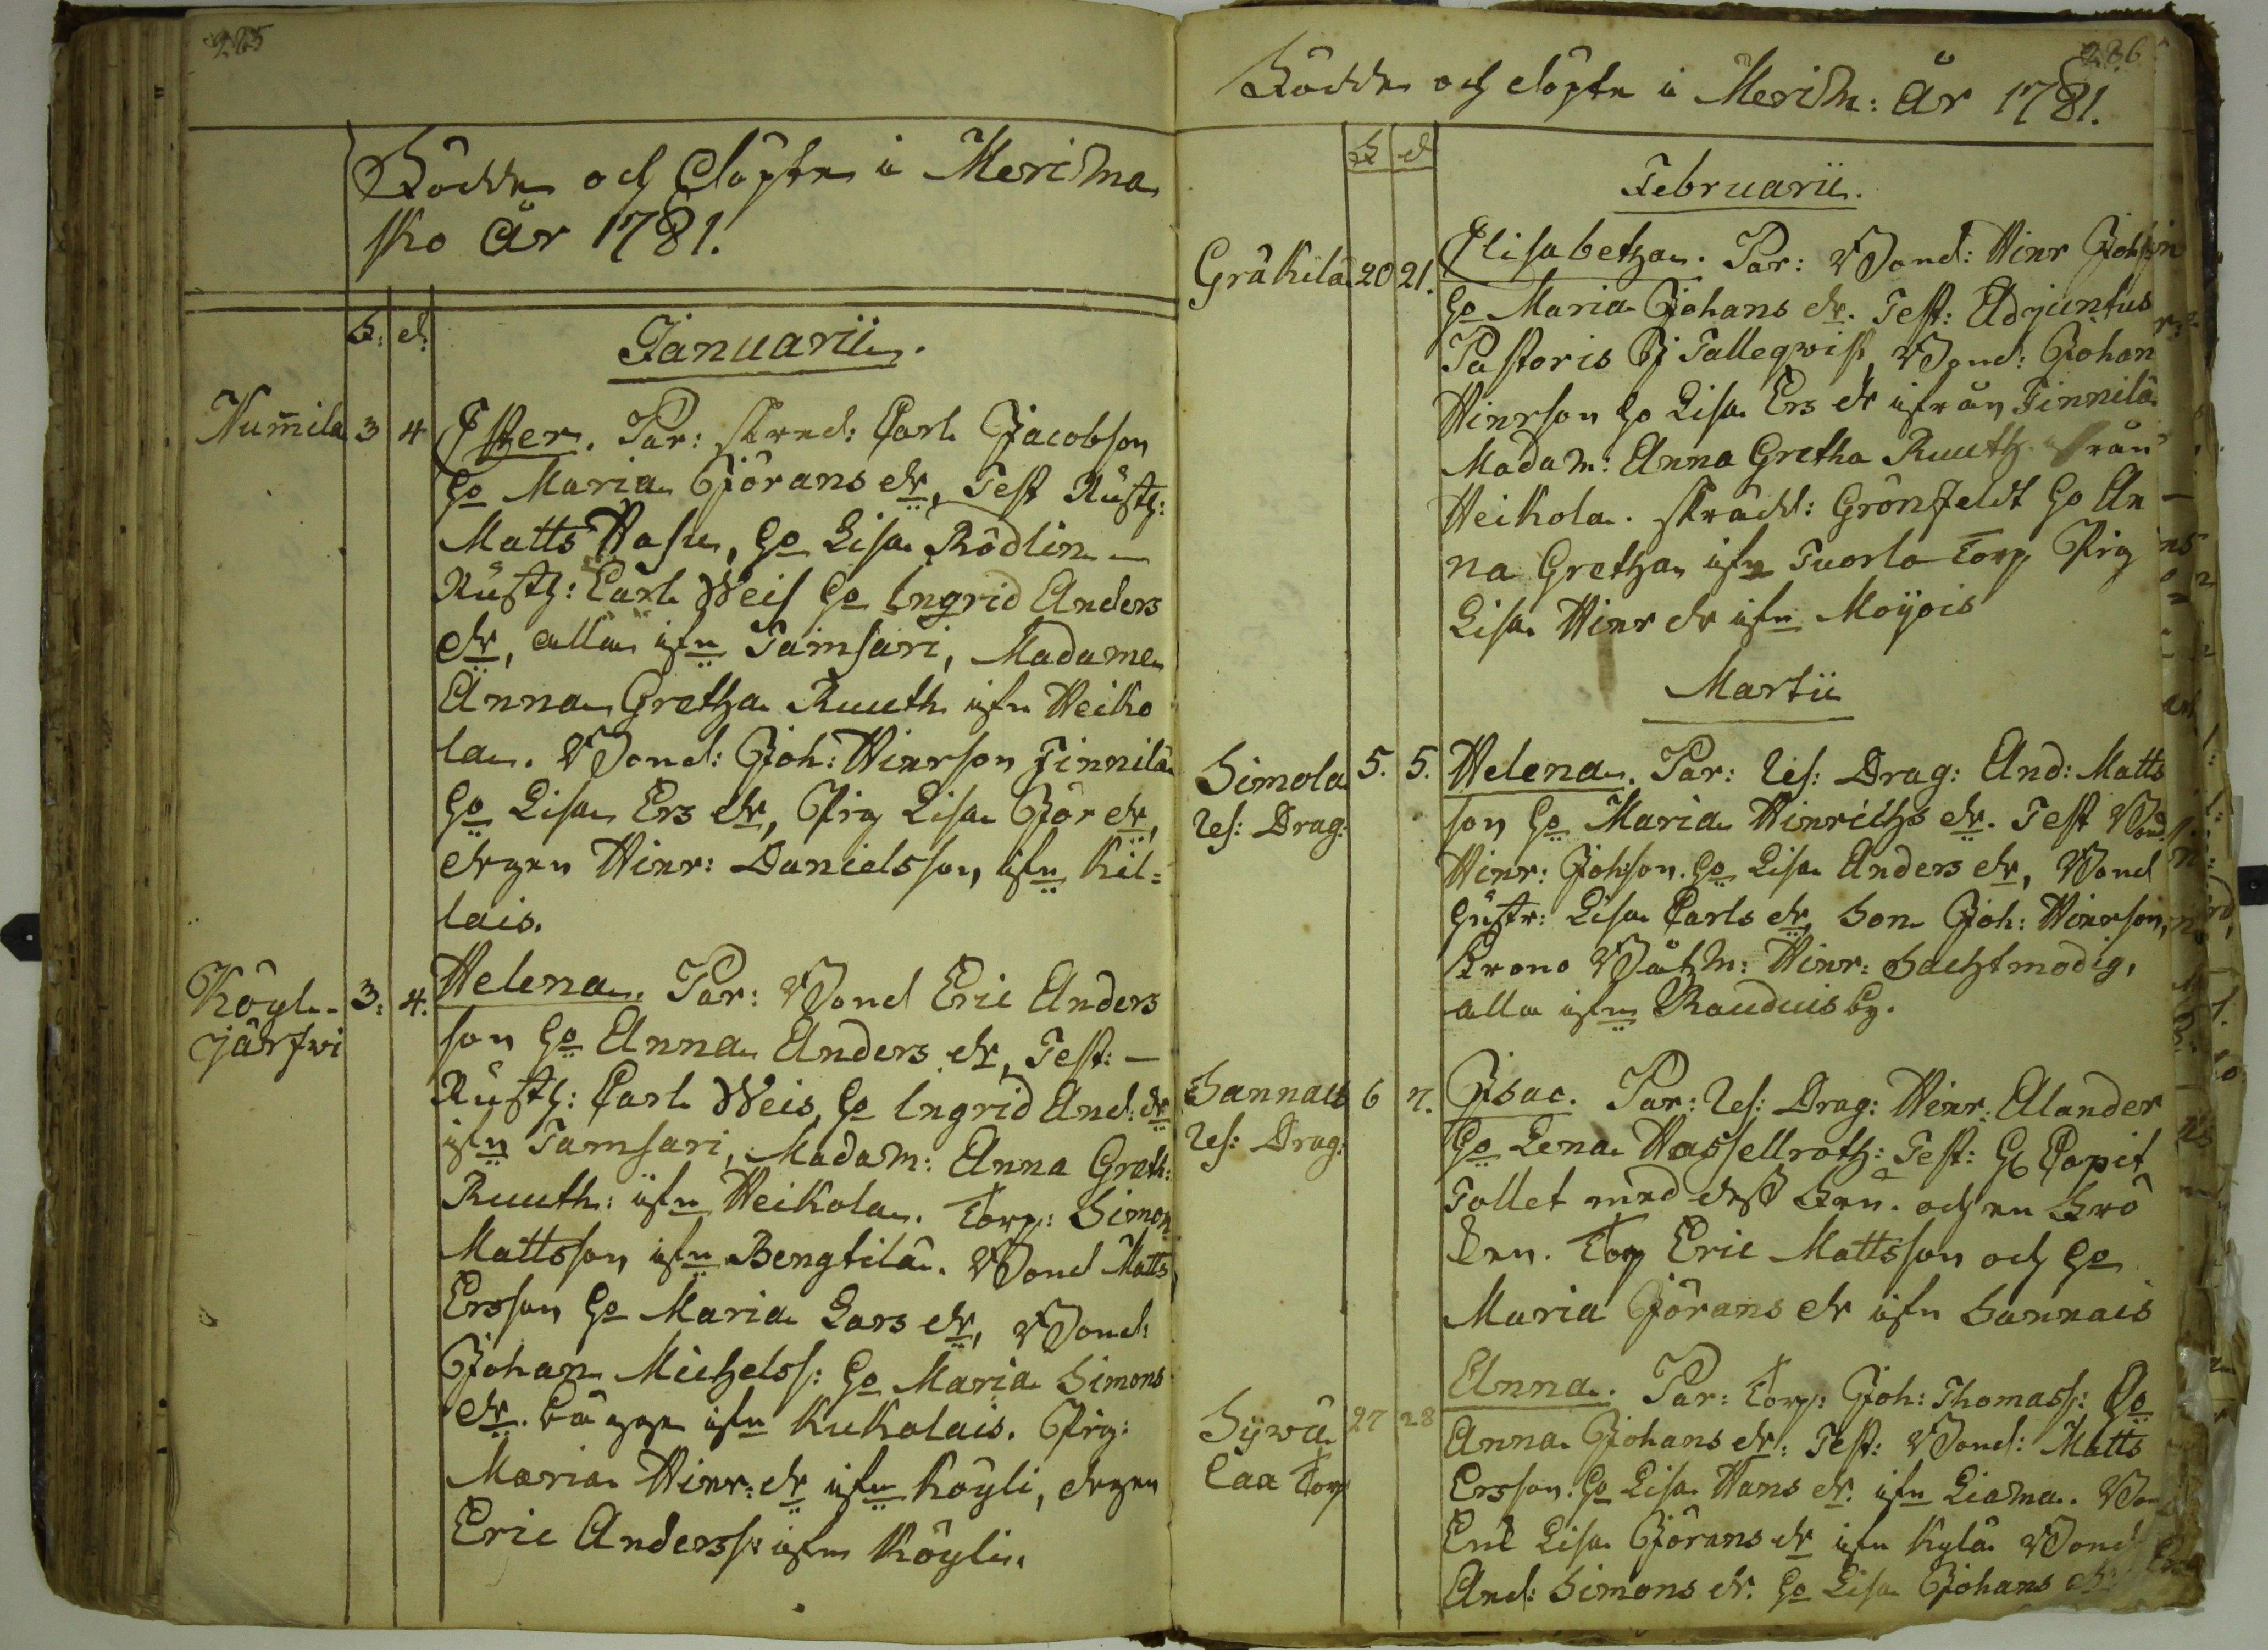 265
Födde och Döpte i Merisma
sko År 1781.
F: d:
Januarii.
Num̄ila 3 4 Ester. Par: Skred: Carl Jacobson
ho Maria Görans dr, Test Rusth:
Matts Hasu, ho Lisa Rödlin —
Rusth: Carl Weis ho Ingrid Anders
dr, alla ifrn Tamsari, Madame
Anna Gretha Ruuth ifrn Heiko
la. Bond: Joh: Hinrson Finnilä
ho Lisa Ers dr, Pig Lisa Gör dr,
drgen Hinr: Danielsson ifrn Kil=
lais.
Köyl- 3: 4. Helena. Par: Bond Eric Anders
järfwi
son ho Anna Anders dr, Test: —
Rusth: Carl Weis, ho Ingrid And: dr
ifrn Tamsari, Madam: Anna Greth:
Ruuth: ifrn Heikola. Torp: Simon
Mattsson ifrn Bengtilä. Bond Matts
Ersson ho Maria Lars dr, Bond:
Johan Michelss: ho Maria Simons
dr. bägge ifrn Kukolais. Pig:
Maria Hinr: dr ifrn Köyli, drgen
Eric Anderss: ifrn Köyli.
266
Födde och döpte i Merism: År 1781.
F d
Februarii.
Gräkilä 20 21. Elisabetha. Par: Bond: Hinr Johsn
ho Maria Johans dr. Test: Adjunctus
Pastoris J Tallegwist, Bond: Johan
Hinrson ho Lisa Ers dr ifrån Finnilä
Madam: Anna Gretha Ruuth ifrån
Heikola. Skrädd: Grönfeldt ho An
na Gretha ifrn Tuorla Torp Pig
Lisa Hinr dr ifrn Moÿois
Martii
Simola 5. 5. Helena. Par: Res: Drag: And: Matts
Res: Drag:
son ho Maria Hinrichs dr. Test Bond
Hinr: Johson. ho Lisa Anders dr, Bond
hustr: Lisa Carls dr, Son Joh: Hinrson,
Krono Båtsm: Hinr: Sachtmodig,
alla ifrn Rauduis by.
Sannais 6 7. Isac. Par: Res: Drag: Hinr: Alander
Res: Drag:
ho Lena Hassellroth: Test: H Capit
Tollet med dess Fru. och en Frö
ken. Torp Eric Mattsson och ho
Maria Görans dr ifrn Sannais
Sÿwä 27 28 Anna. Par: Torp: Joh: Thomass: ho
Laa Torp
Anna Johans dr: Test: Bond: Matts
Ersson. ho Lisa Hans dr. ifrn Liama. Bon
Enk Lisa Görans dr ifrn Kylä Bond
And: Simons dr. ho Lisa Johans dr